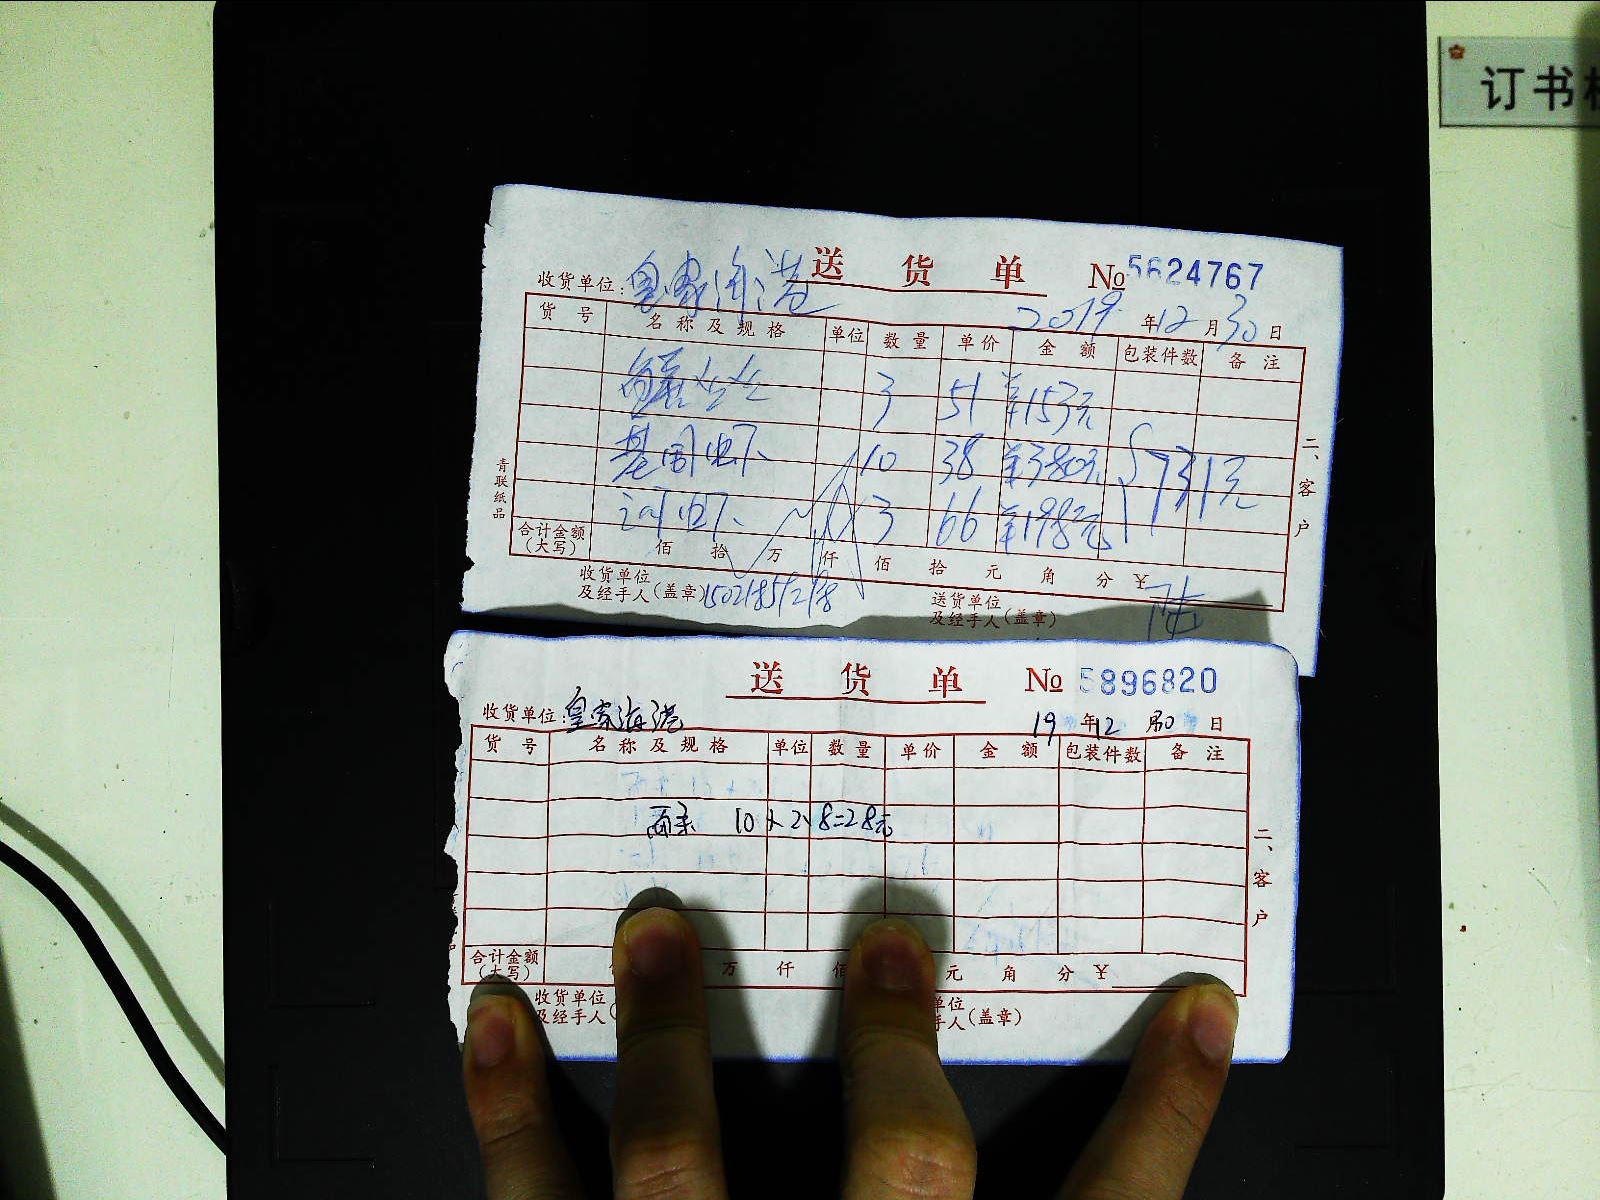 订书机
送货单 №5624767
收货单位：皇家海港 2019年12月30日
货号 名称及规格 单位 数量 单价 金额 包装件数 备注
3 51 ¥153元
基围虾 10 38 ¥380元 731元
河虾 3 66 ¥198元
合计金额(大写) 佰 拾 万 仟 佰 拾 元 角 分 ¥
收货单位及经手人(盖章) 送货单位及经手人(盖章) 陆
青联纸品
二、客户
送货单 №5896820
收货单位：皇家海港 19年12月30日
货号 名称及规格 单位 数量 单价 金额 包装件数 备注
10×2.8=28元
合计金额(大写) 万 仟 佰 元 角 分 ¥
收货单位及经手人( 单位手人(盖章)
二、客户